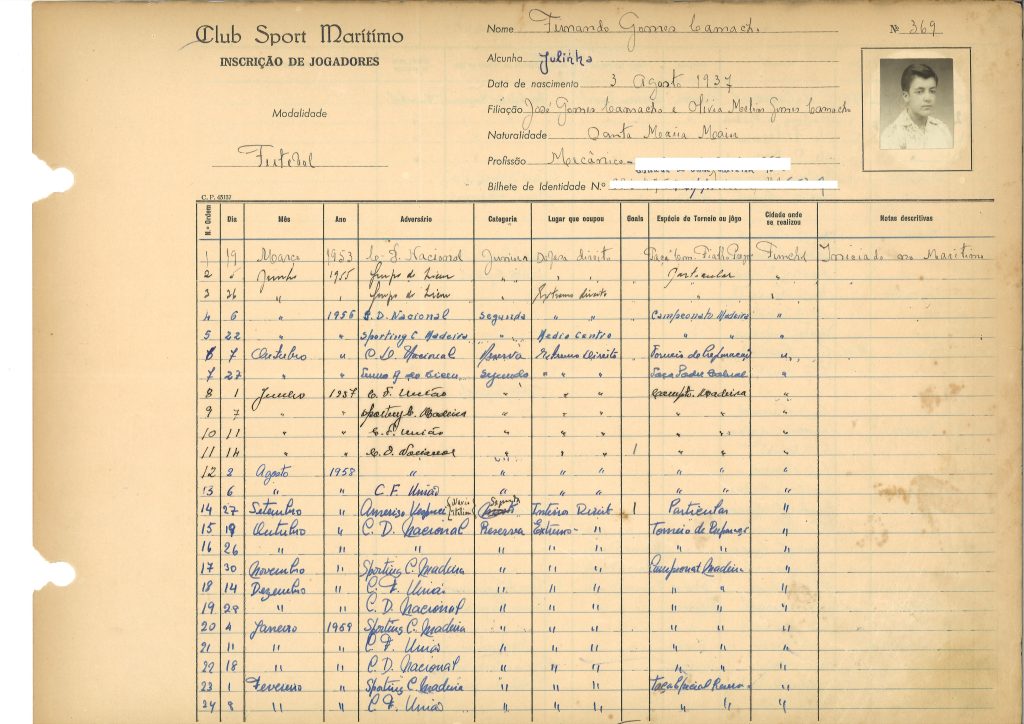 Club Sport Marítimo
INSCRIÇÃO DE JOGADORES
Modalidade
Futebol
Nome Fernando Gomes Camacho
Nº 369
Alcunha Julinho
Data de nascimento 3 Agosto 1937
Filiação José Gomes Camacho e Olívia Gomes Camacho
Naturalidade Santa Maria Maior
Profissão Mecânico
Bilhete de Identidade N.º
C. P. 45137
N.º Ordem Dia Mês Ano Adversário Categoria Lugar que ocupou Goals Espécie de Torneio ou jôgo Cidade onde se realizou Notas descritivas
1 19 Março 1953 C. D. Nacional Juniors Defesa direito Taça Funchal Iniciado no Marítimo
2 Junho 1955 Grupo do Liceu " " " Particular "
3 26 " " Grupo do Liceu " Extremo direito " "
4 6 " 1956 C. D. Nacional Segunda " " Campeonato Madeira "
5 22 " " Sporting C. Madeira " Medio Centro " "
6 7 Outubro " C. D. Nacional Reserva Extremo Direito Torneio de Preparação "
7 27 " " do Liceu Segunda " " Taça Cabral "
8 1 Junho 1957 C. F. União " " " Campto. Madeira "
9 7 " " Sporting C. Madeira " " " " " "
10 11 " " C. F. União " " " " " "
11 14 " " C. D. Nacional " " " 1 " " "
12 2 Agosto 1958 " " " " " " "
13 6 " " C. F. União " " " " " "
14 27 Setembro " Americo Vespuci Segunda Interior Direito 1 Particular "
15 19 Outubro " C. D. Nacional Reserva Extremo " Torneio de Preparação "
16 26 " " " " " " " " "
17 30 Novembro " Sporting C. Madeira " " " Campeonato Madeira "
18 14 Dezembro " C. F. União " " " " " "
19 28 " " C. D. Nacional " " " " " "
20 4 Janeiro 1959 Sporting C. Madeira " " " " " "
21 11 " " C. F. União " " " " " "
22 18 " " C. D. Nacional " " " " " "
23 1 Fevereiro " Sporting C. Madeira " " " Taça Especial Reserva "
24 8 " " C. F. União " " " " " "